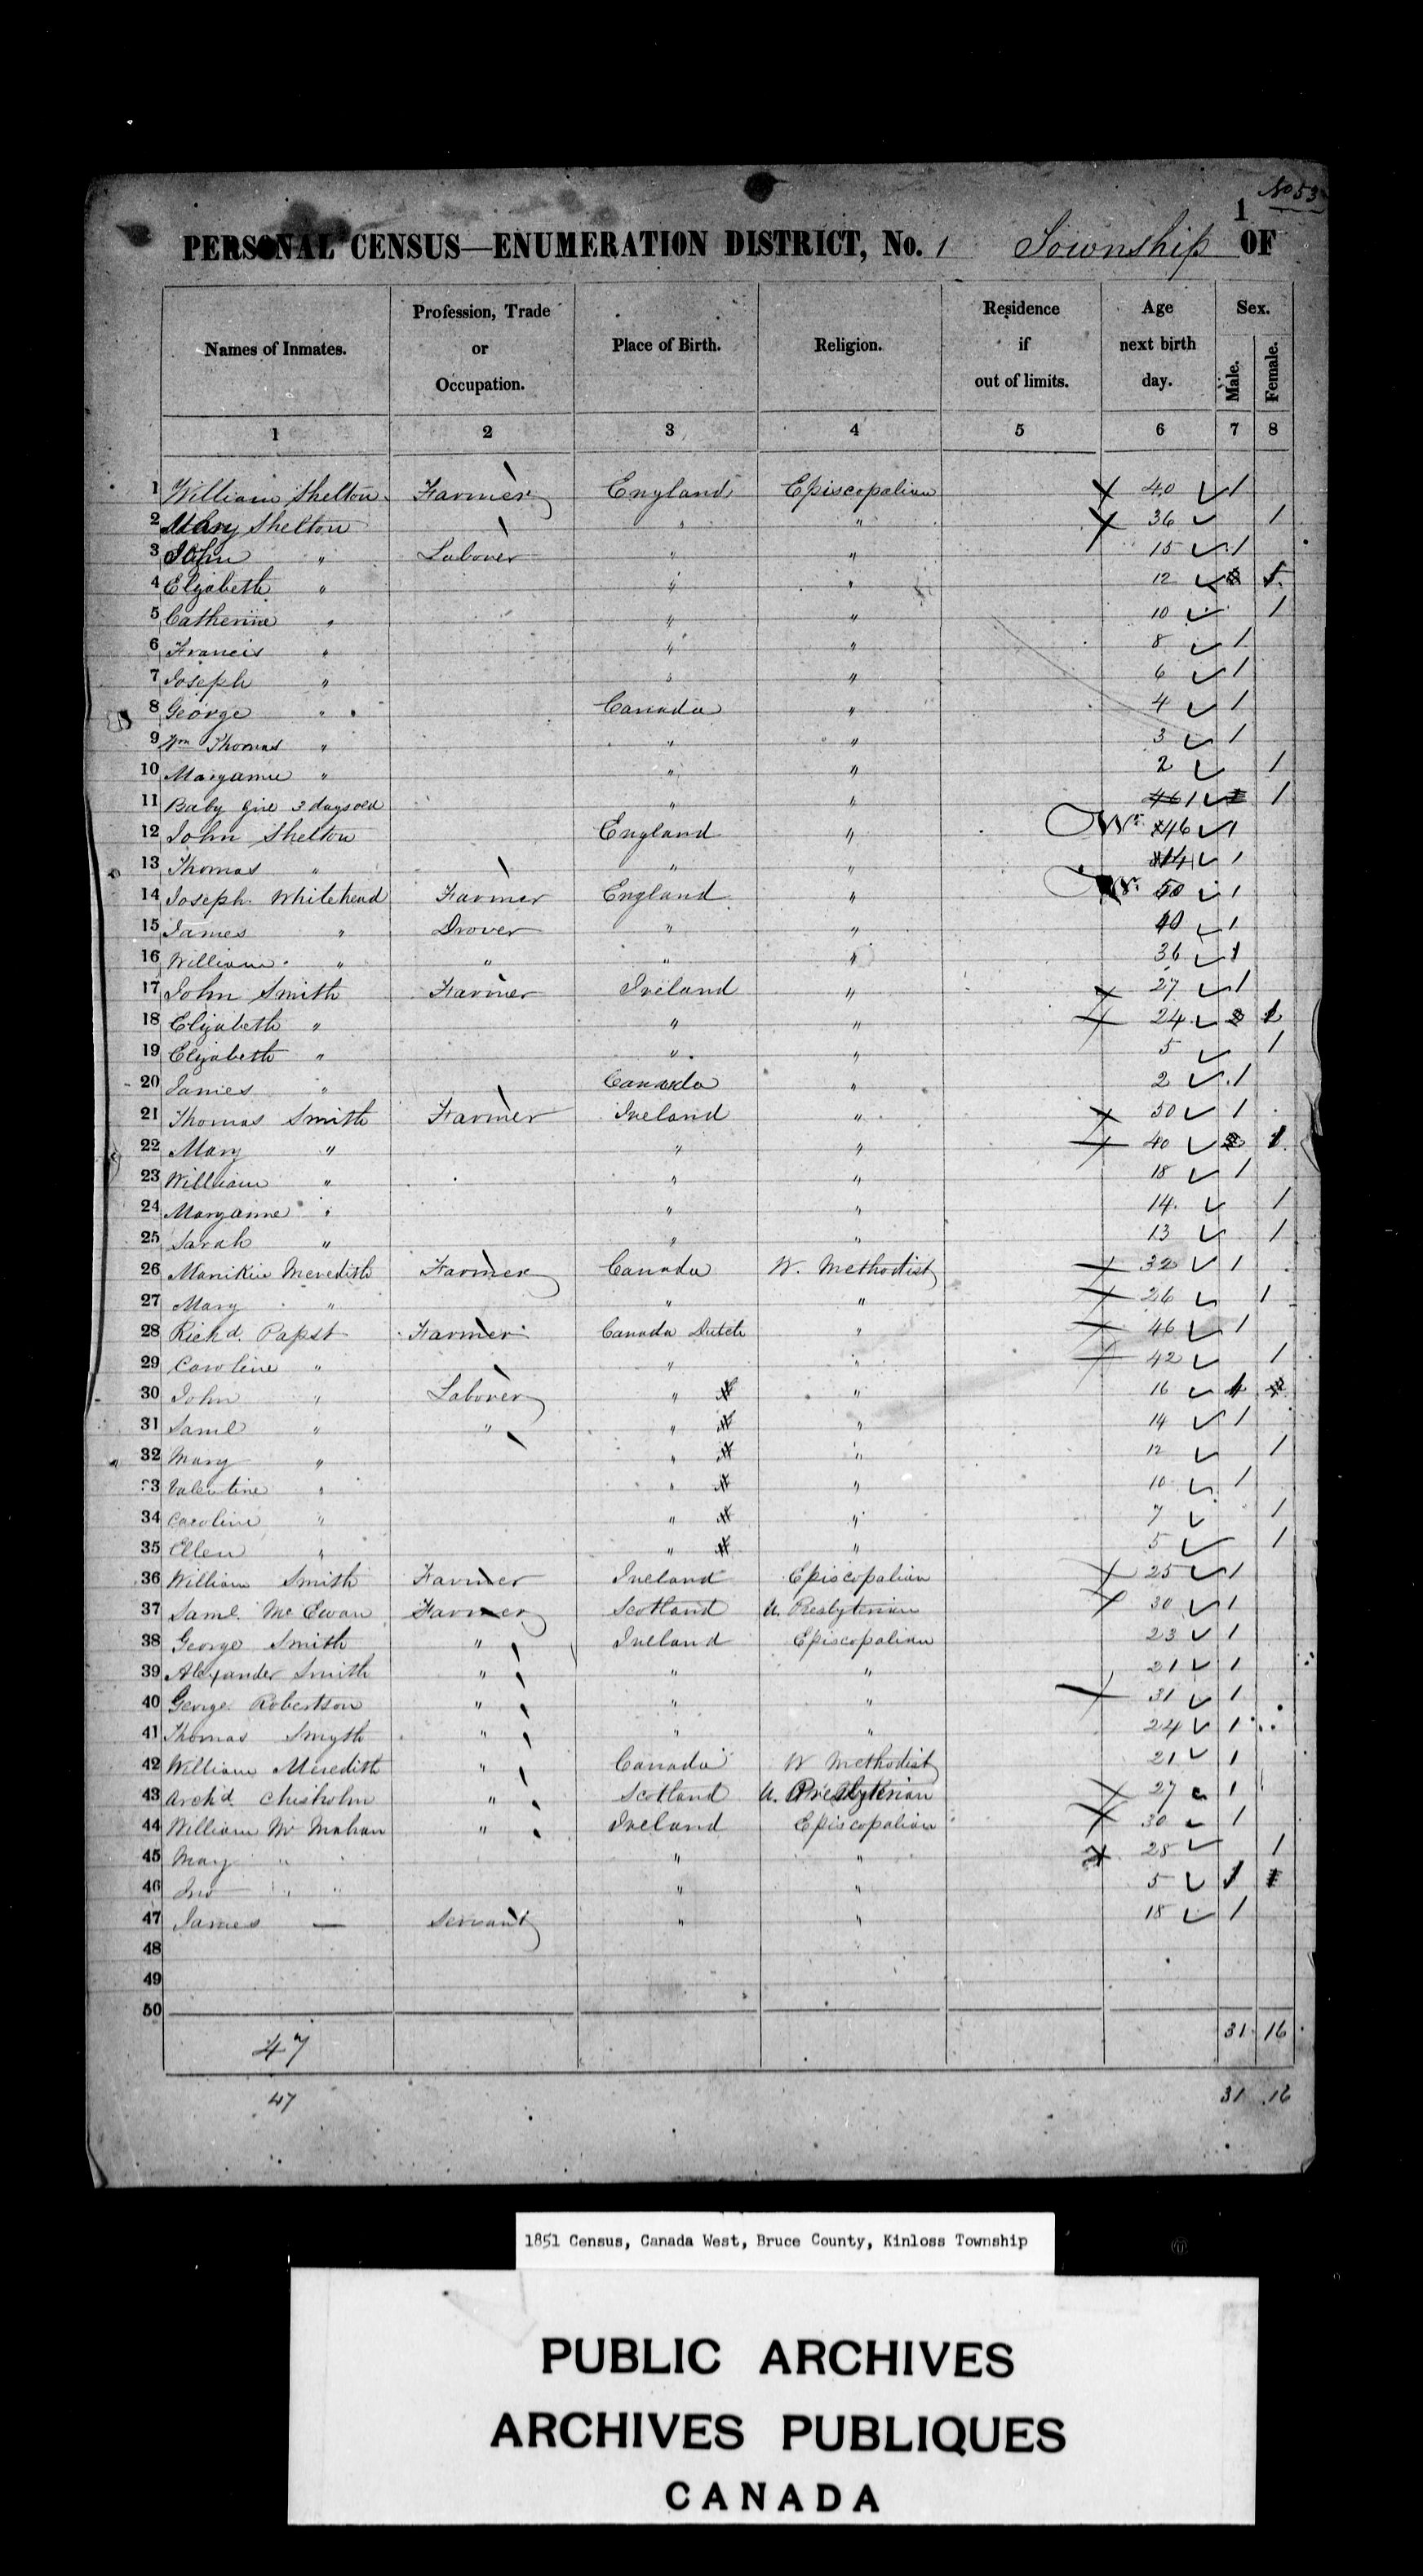 No 53
1
PERSONAL CENSUS—ENUMERATION DISTRICT, No. 1 Township OF
Names of Inmates. Profession, Trade or Occupation. Place of Birth. Religion. Residence if out of limits. Age next birth day. Sex. Male. Female.
1 2 3 4 5 6 7 8
1 William Shelton Farmer England Episcopalian 40 1
2 Mary Shelton " " 36 1
3 John " Laborer " " 15 1
4 Elizabeth " " " 12 1
5 Catherine " " " 10 1
6 Francis " " " 8 1
7 Joseph " " " 6 1
8 George " Canada " 4 1
9 Wm Thomas " " " 3 1
10 Maryanne " " " 2 1
11 Baby girl 3 days old " " 1 1
12 John Shelton England " Wr. 46 1
13 Thomas " " " 14 1
14 Joseph Whitehead Farmer England " Wr. 50 1
15 James " Drover " " 40 1
16 William " " " " 36 1
17 John Smith Farmer Ireland " 27 1
18 Elizabeth " " " 24 1
19 Elizabeth " " " 5 1
20 James " Canada " 2 1
21 Thomas Smith Farmer Ireland " 50 1
22 Mary " " " 40 1
23 William " " " 18 1
24 Maryanne " " " 14 1
25 Sarah " " " 13 1
26 Meredith Farmer Canada W. Methodist 32 1
27 Mary " " " 26 1
28 Richd. Papst Farmer Canada Dutch " 46 1
29 Caroline " " " 42 1
30 John " Laborer " " 16 1
31 Saml " " " " 14 1
32 Mary " " " 12 1
33 Valentine " " " 10 1
34 Caroline " " " 7 1
35 Ellen " " " 5 1
36 William Smith Farmer Ireland Episcopalian 25 1
37 Saml. Mc Ewan Farmer Scotland U. Presbyterian 30 1
38 George Smith " Ireland Episcopalian 23 1
39 Alexander Smith " " " 21 1
40 George Robertson " " " 31 1
41 Thomas Smyth " " " 24 1
42 William Meredith " Canada W Methodist 21 1
43 Archd. Chisholm " Scotland U. Presbyterian 27 1
44 William Mc Mahan " Ireland Episcopalian 30 1
45 Mary " " " " 28 1
46 Jno " " " " 5 1
47 James — Servant " " 18 1
48
49
50
47 31 16
47 31 16
1851 Census, Canada West, Bruce County, Kinloss Township
PUBLIC ARCHIVES
ARCHIVES PUBLIQUES
CANADA